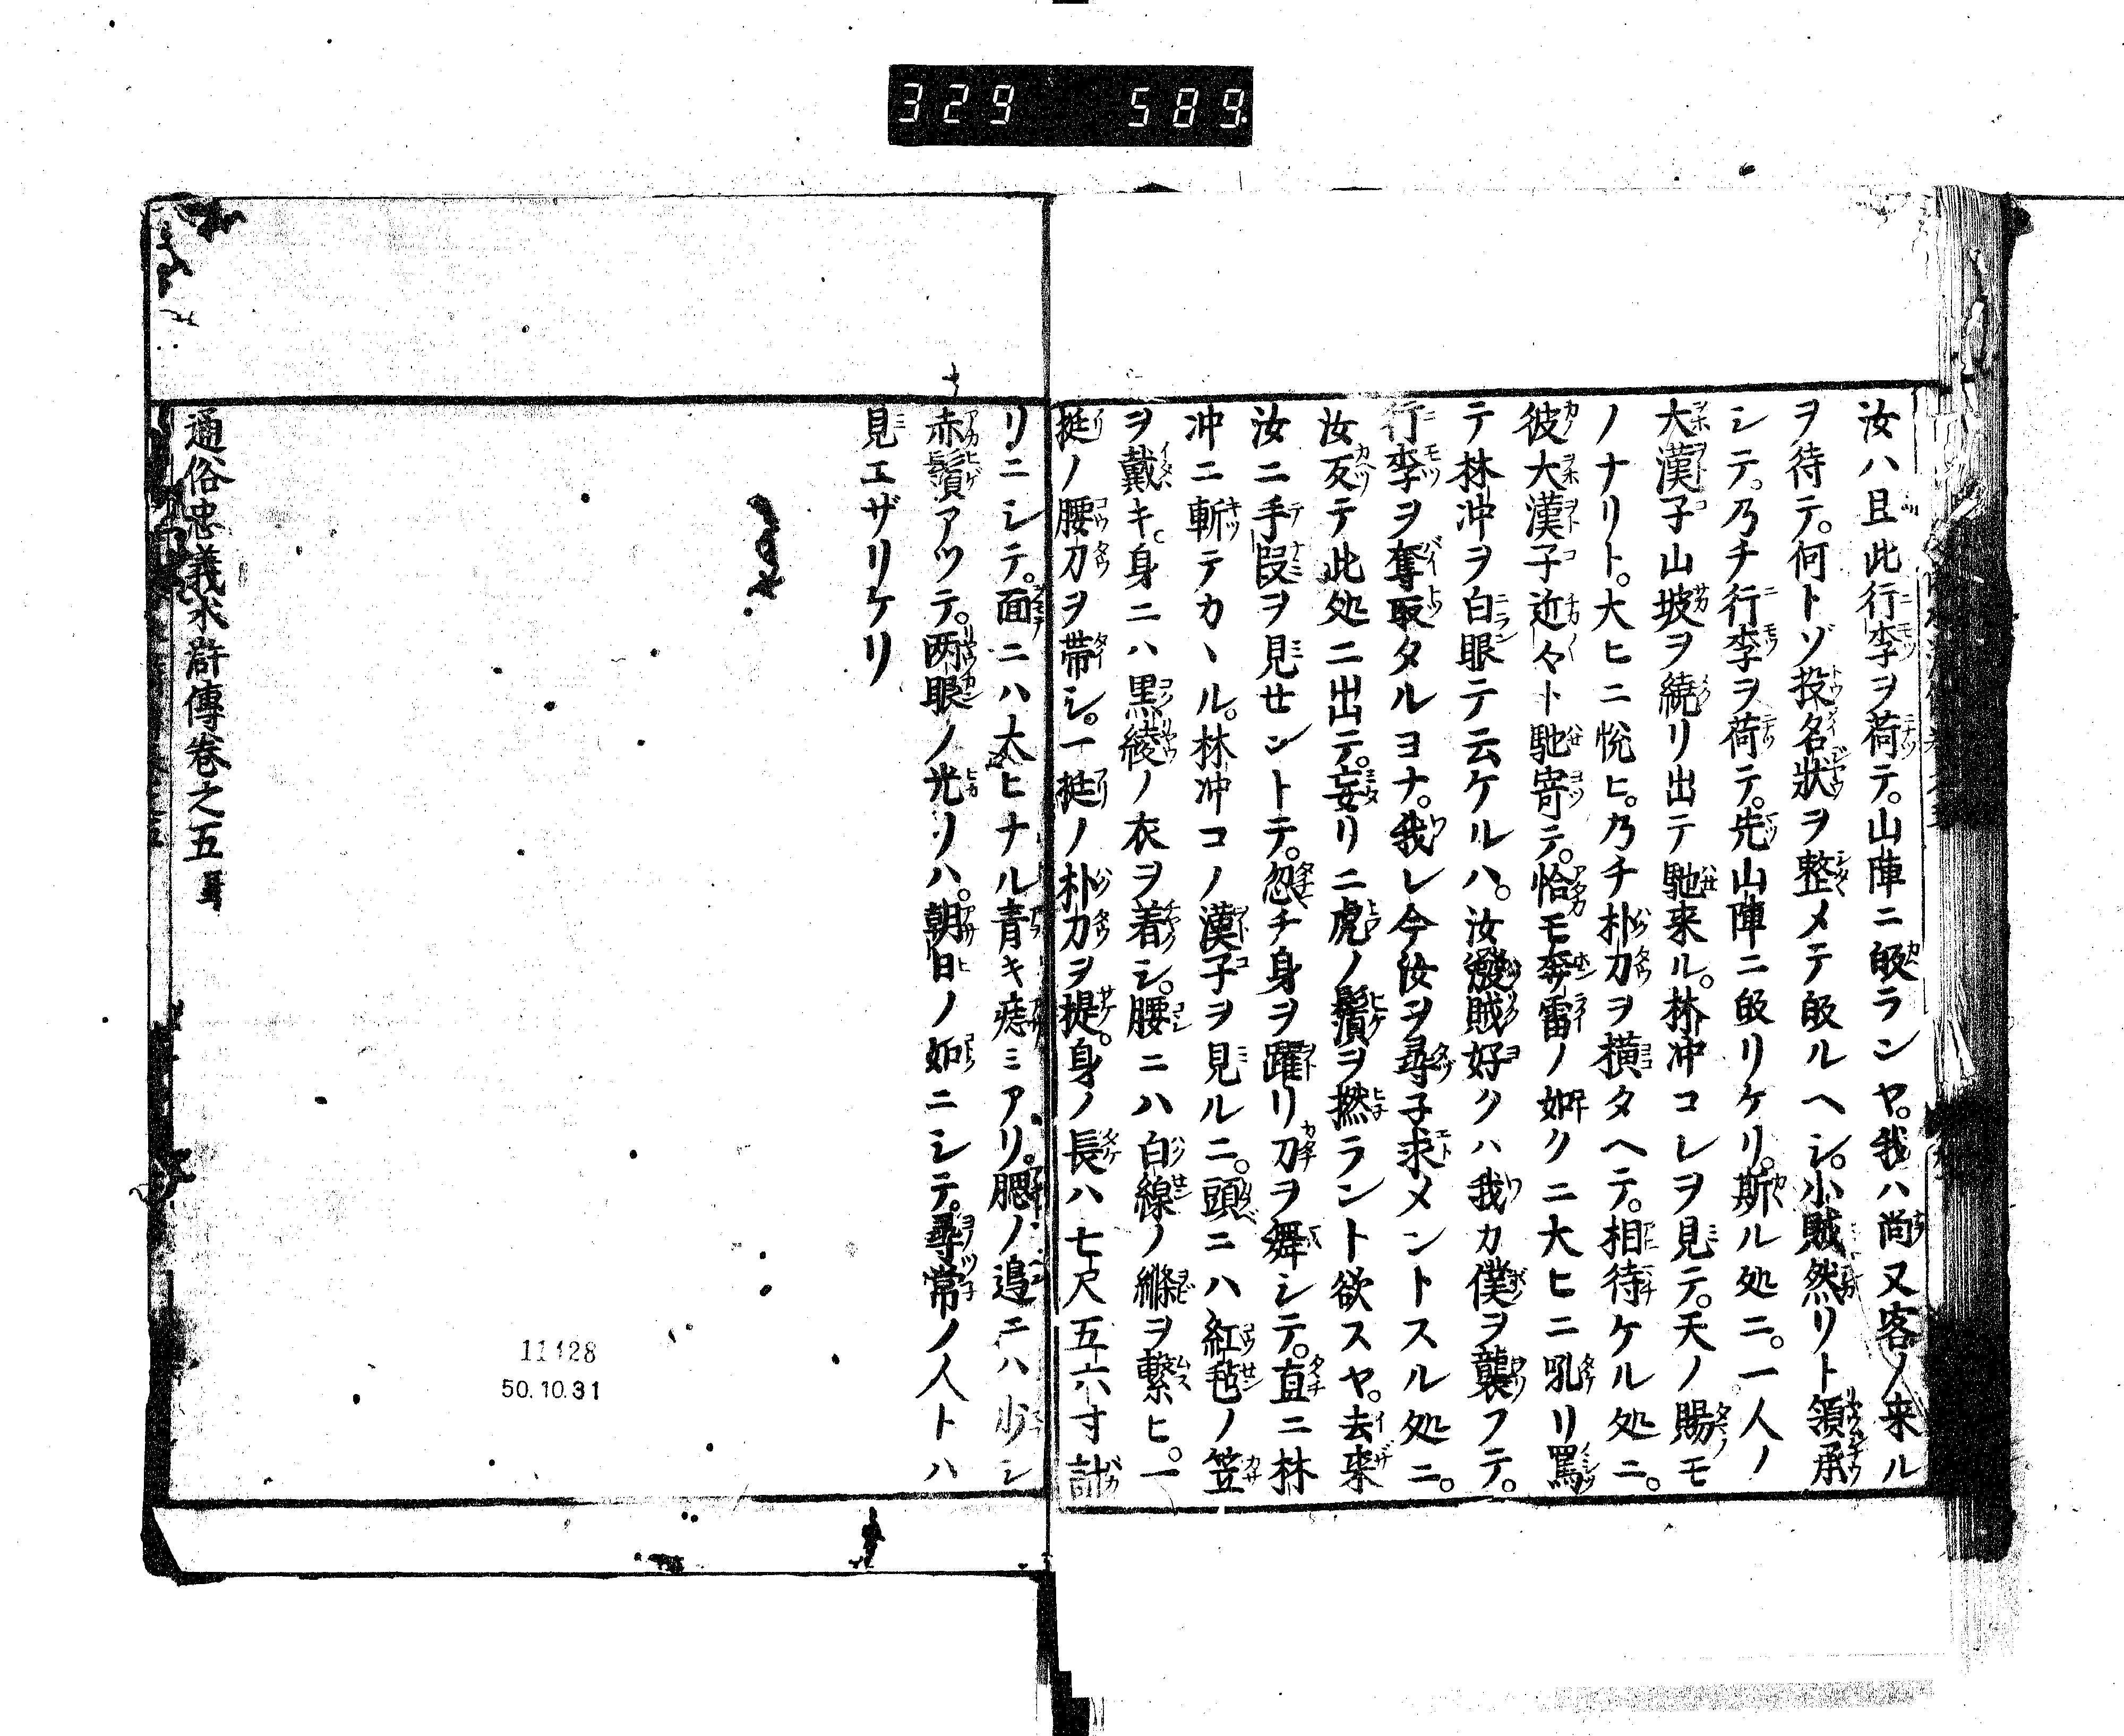 329 589
汝ハ且此行李ヲ荷テ。山陣ニ皈ランヤ。我ハ尚又客ノ来ル
ヲ待テ。何トゾ投名状ヲ整メテ皈ルヘシ。小賊然リト領承
シテ。乃チ行李ヲ荷テ。先山陣ニ皈リケリ。斯ル処ニ。一人ノ
大漢子山坡ヲ繞リ出テ馳来ル。林冲コレヲ見テ。天ノ賜モ
ノナリト。大ヒニ悦ヒ。乃チ朴刀ヲ横タヘテ。相待ケル処ニ。
彼大漢子近々ト馳寄テ。恰モ奔雷ノ如クニ大ヒニ吼リ罵
テ林冲ヲ白眼テ云ケルハ。汝潑賊好クハ我カ僕ヲ襲フテ。
行李ヲ奪取タルヨナ。我レ今汝ヲ尋子求メントスル処ニ。
汝反テ此処ニ出テ。妄リニ虎ノ鬚ヲ撚ラント欲スヤ。去来
汝ニ手段ヲ見せントテ。忽チ身ヲ躍リ刀ヲ舞シテ。直ニ林
冲ニ斬テカヽル。林冲コノ漢子ヲ見ルニ。頭ニハ紅毡ノ笠
ヲ戴キ。身ニハ黒綾ノ衣ヲ着シ。腰ニハ白線ノ縧ヲ繋ヒ。一
挺ノ腰刀ヲ帯シ。一挺ノ朴刀ヲ提。身ノ長ハ七尺五六寸計
リニシテ。面ニハ大ヒナル青キ痣ミアリ。腮ノ邉ニハ少シ
赤鬚アツテ。両眼ノ光リハ。朝日ノ如ニシテ。尋常ノ人トハ
見エザリケリ
通俗忠義水滸傳巻之五
11428
50.10.31